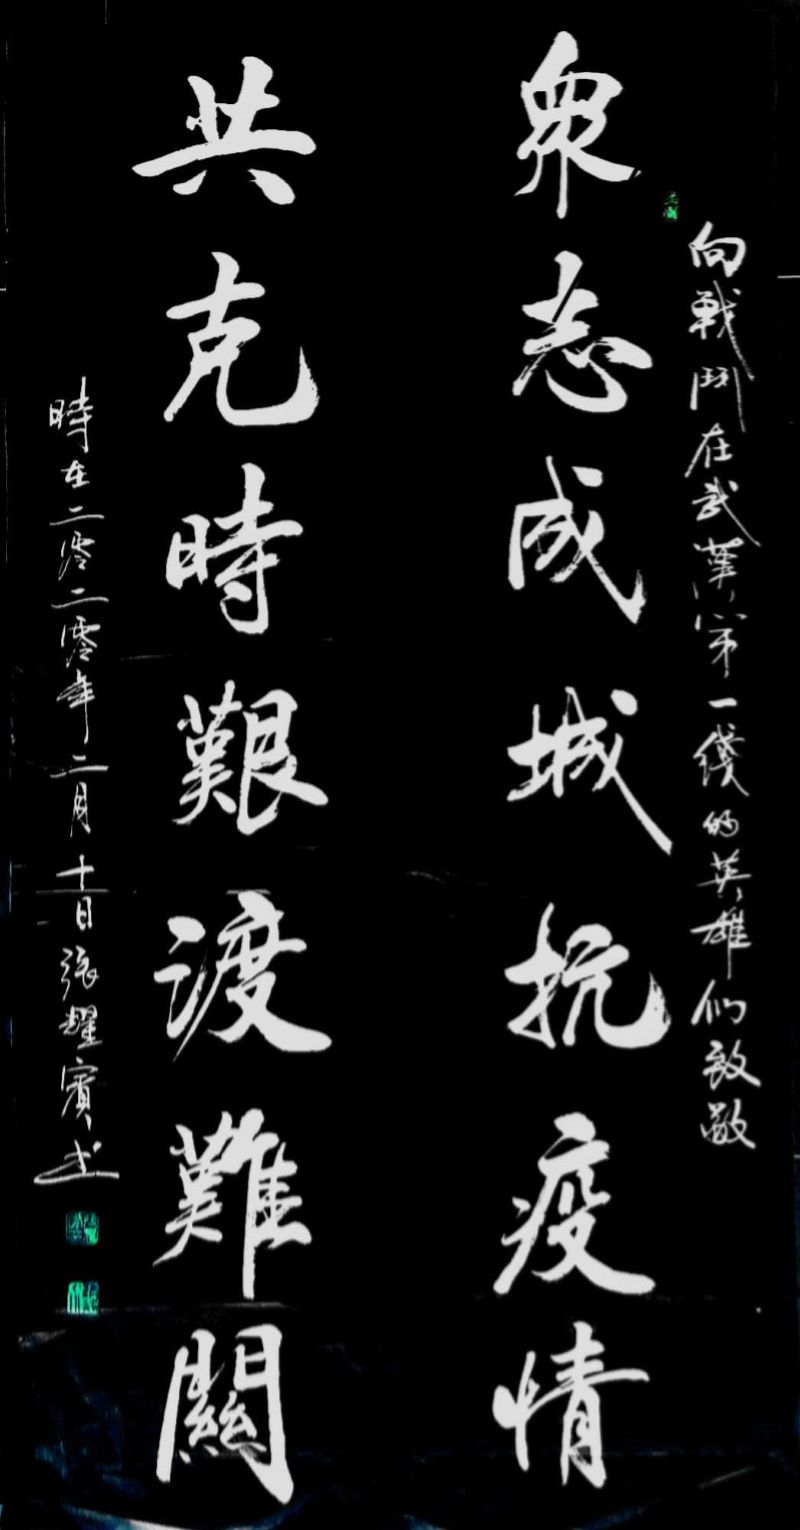 向戰鬥在武漢第一綫的英雄們致敬
衆志成城抗疫情
共克時艱渡難關
時在二零二零年二月十日張耀賓书